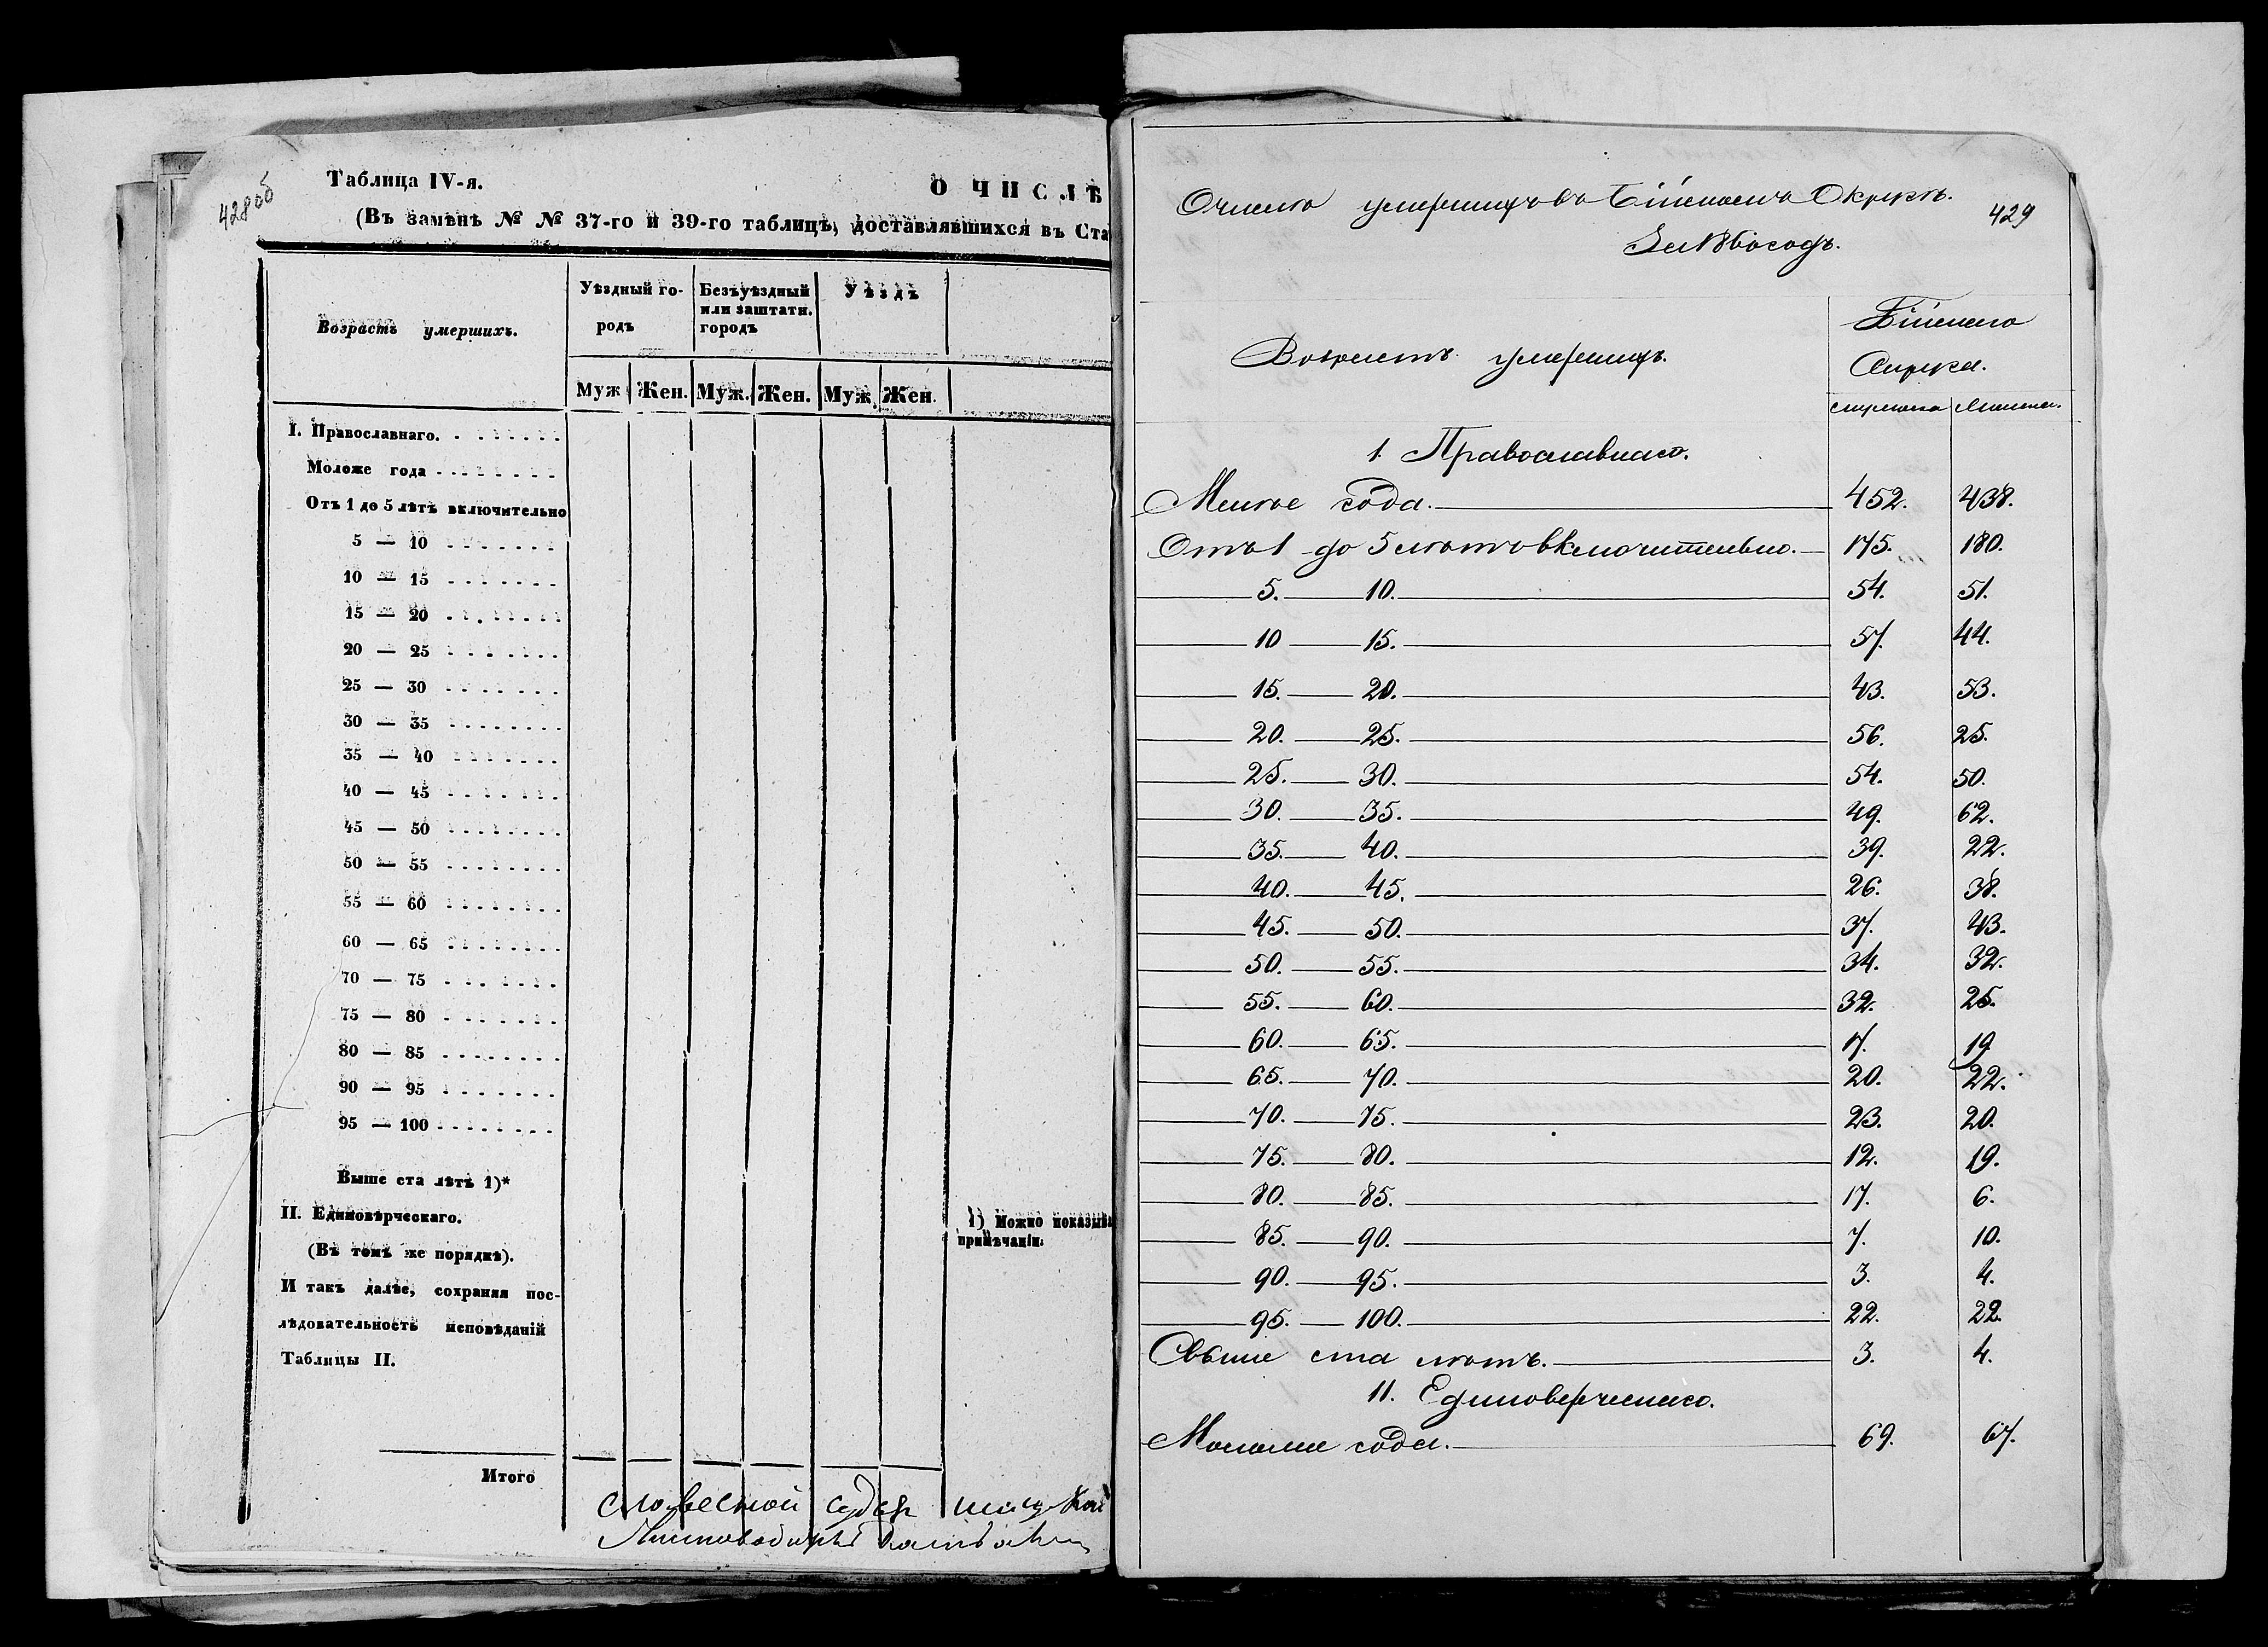 428об
Таблица IV-я.
О ЧИСЛѢ
(Въ замѣнѣ № № 37-го и 39-го таблицъ, доставлявшихся въ Ста
Возрастъ умершихъ.
Уѣздный го-
родъ
Безъуѣздный
или заштатн.
городъ
Уѣздъ
Муж Жен. Муж. Жен. Муж. Жен.
I. Православнаго. . . . . . . .
Моложе года . . . . . . . .
Отъ 1 до 5 лѣтъ включительно
5 — 10 . . . . . . .
10 — 15 . . . . . . .
15 — 20 . . . . . . .
20 — 25 . . . . . . .
25 — 30 . . . . . . .
30 — 35 . . . . . . .
35 — 40 . . . . . . .
40 — 45 . . . . . . .
45 — 50 . . . . . . .
50 — 55 . . . . . . .
55 — 60 . . . . . . .
60 — 65 . . . . . . .
70 — 75 . . . . . . .
75 — 80 . . . . . . .
80 — 85 . . . . . . .
90 — 95 . . . . . . .
95 — 100 . . . . . . .
Выше ста лѣтъ 1)*
II. Единовѣрческаго.
(Въ томъ же порядкѣ).
И такъ далѣе, сохраняя пос-
лѣдовательность исповѣданій
Таблицы II.
1) Можно показыва
примѣчаніи:
Итого
словесной судья
429
О числѣ умершихъ въ Бійскомъ Округѣ.
За 186 годъ.
Возрастъ умершихъ.
Бійскаго
Округа.
мужеска женска.
1. Православнаго.
Менѣе года. 452. 438.
Отъ 1 до 5 лѣтъ включительно. 175. 180.
5. — 10. 54. 51.
10 — 15. 57. 44.
15. — 20. 43. 53.
20. — 25. 56. 25.
25. — 30. 54. 50.
30. — 35. 49. 62.
35. — 40. 39. 22.
40. — 45. 26. 38.
45. — 50. 37. 43.
50. — 55. 34. 32.
55. — 60. 32. 25.
60. — 65. 17. 19
65. — 70. 20. 22.
70. — 75. 23. 20.
75. — 80. 12. 19.
80. — 85. 17. 6.
85. — 90. 7. 10.
90. — 95. 3. 4.
95. — 100. 22. 22.
Свыше ста лѣтъ. 3. 4.
II. Единоверческаго.
Моложе года. 69. 67.